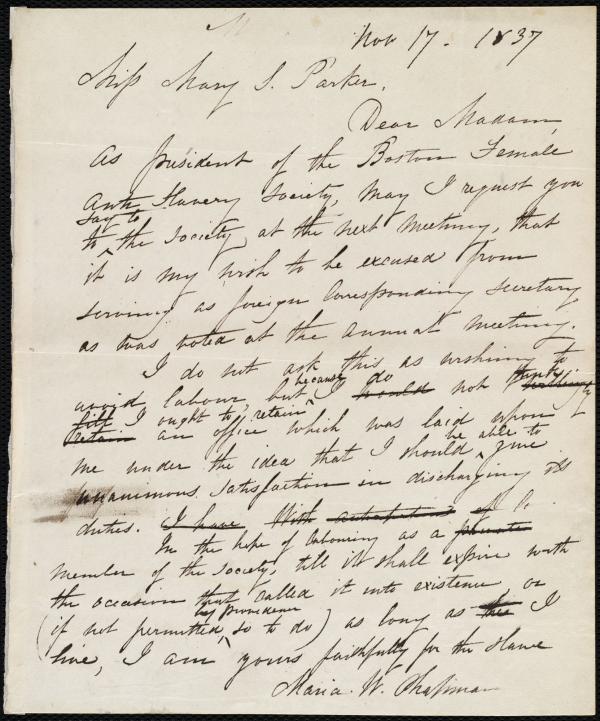 Nov 17. 1837
Miss Mary S. Parker.
Dear Madam,
As president of the Boston Female
Anti Slavery Society, May I request you
say to
to the Society, at the next meeting, that
it is my wish to be excused from
serving as foreign Corresponding Secretary
as was voted at the annual meeting.
I do not ask this as wishing to
avoid labour, but because I do would not think
fill I ought to retain
retain an office which was laid upon
me under the idea that I should be able to give
unanimous satisfaction in discharging its
duties. I have With anticipations of
In the hope of labouring as a private
member of the Society, till it shall expire with
the occasion that called it into existence, or
(if not permitted, by providence so to do) as long as this I
live, I am yours faithfully for the Slave
Maria W. Chapman